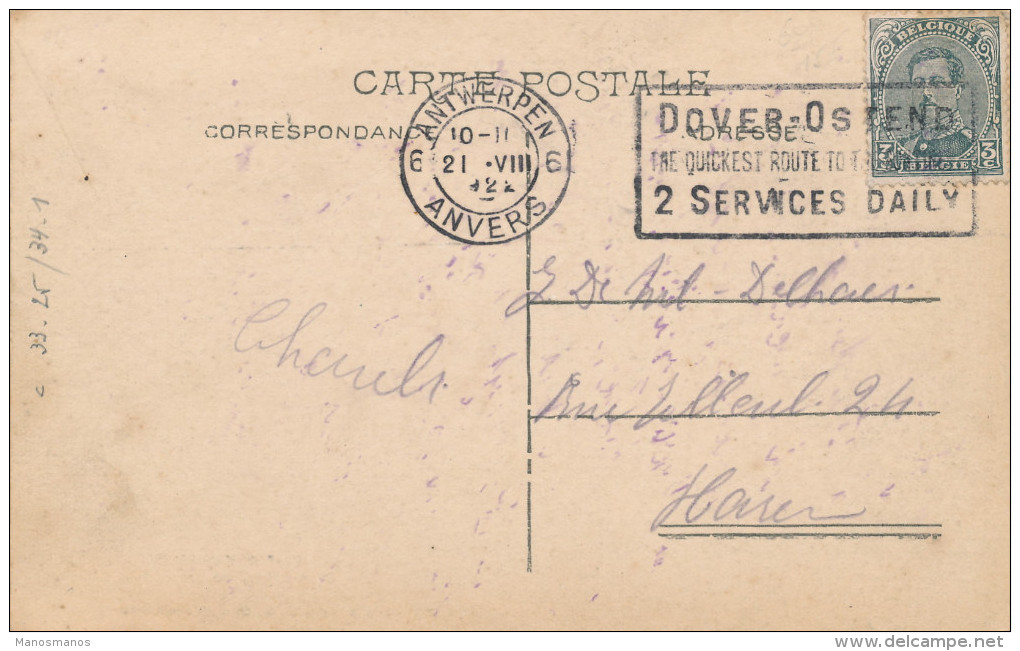 CARTE POSTALE
CORRESPONDANC
ADRESSE
ANTWERPEN
10-11
6 21 .VIII 6
1922
ANVERS
DOVER-OSTEND
THE QUICKEST ROUTE TO
2 SERVICES DAILY
BELGIQUE
3 C 3 C
BELGIE
De Delhaes
Rue Tilleul 24
Haren
Charles
c 33.25/34.1
Manosmanos
www.delcampe.net